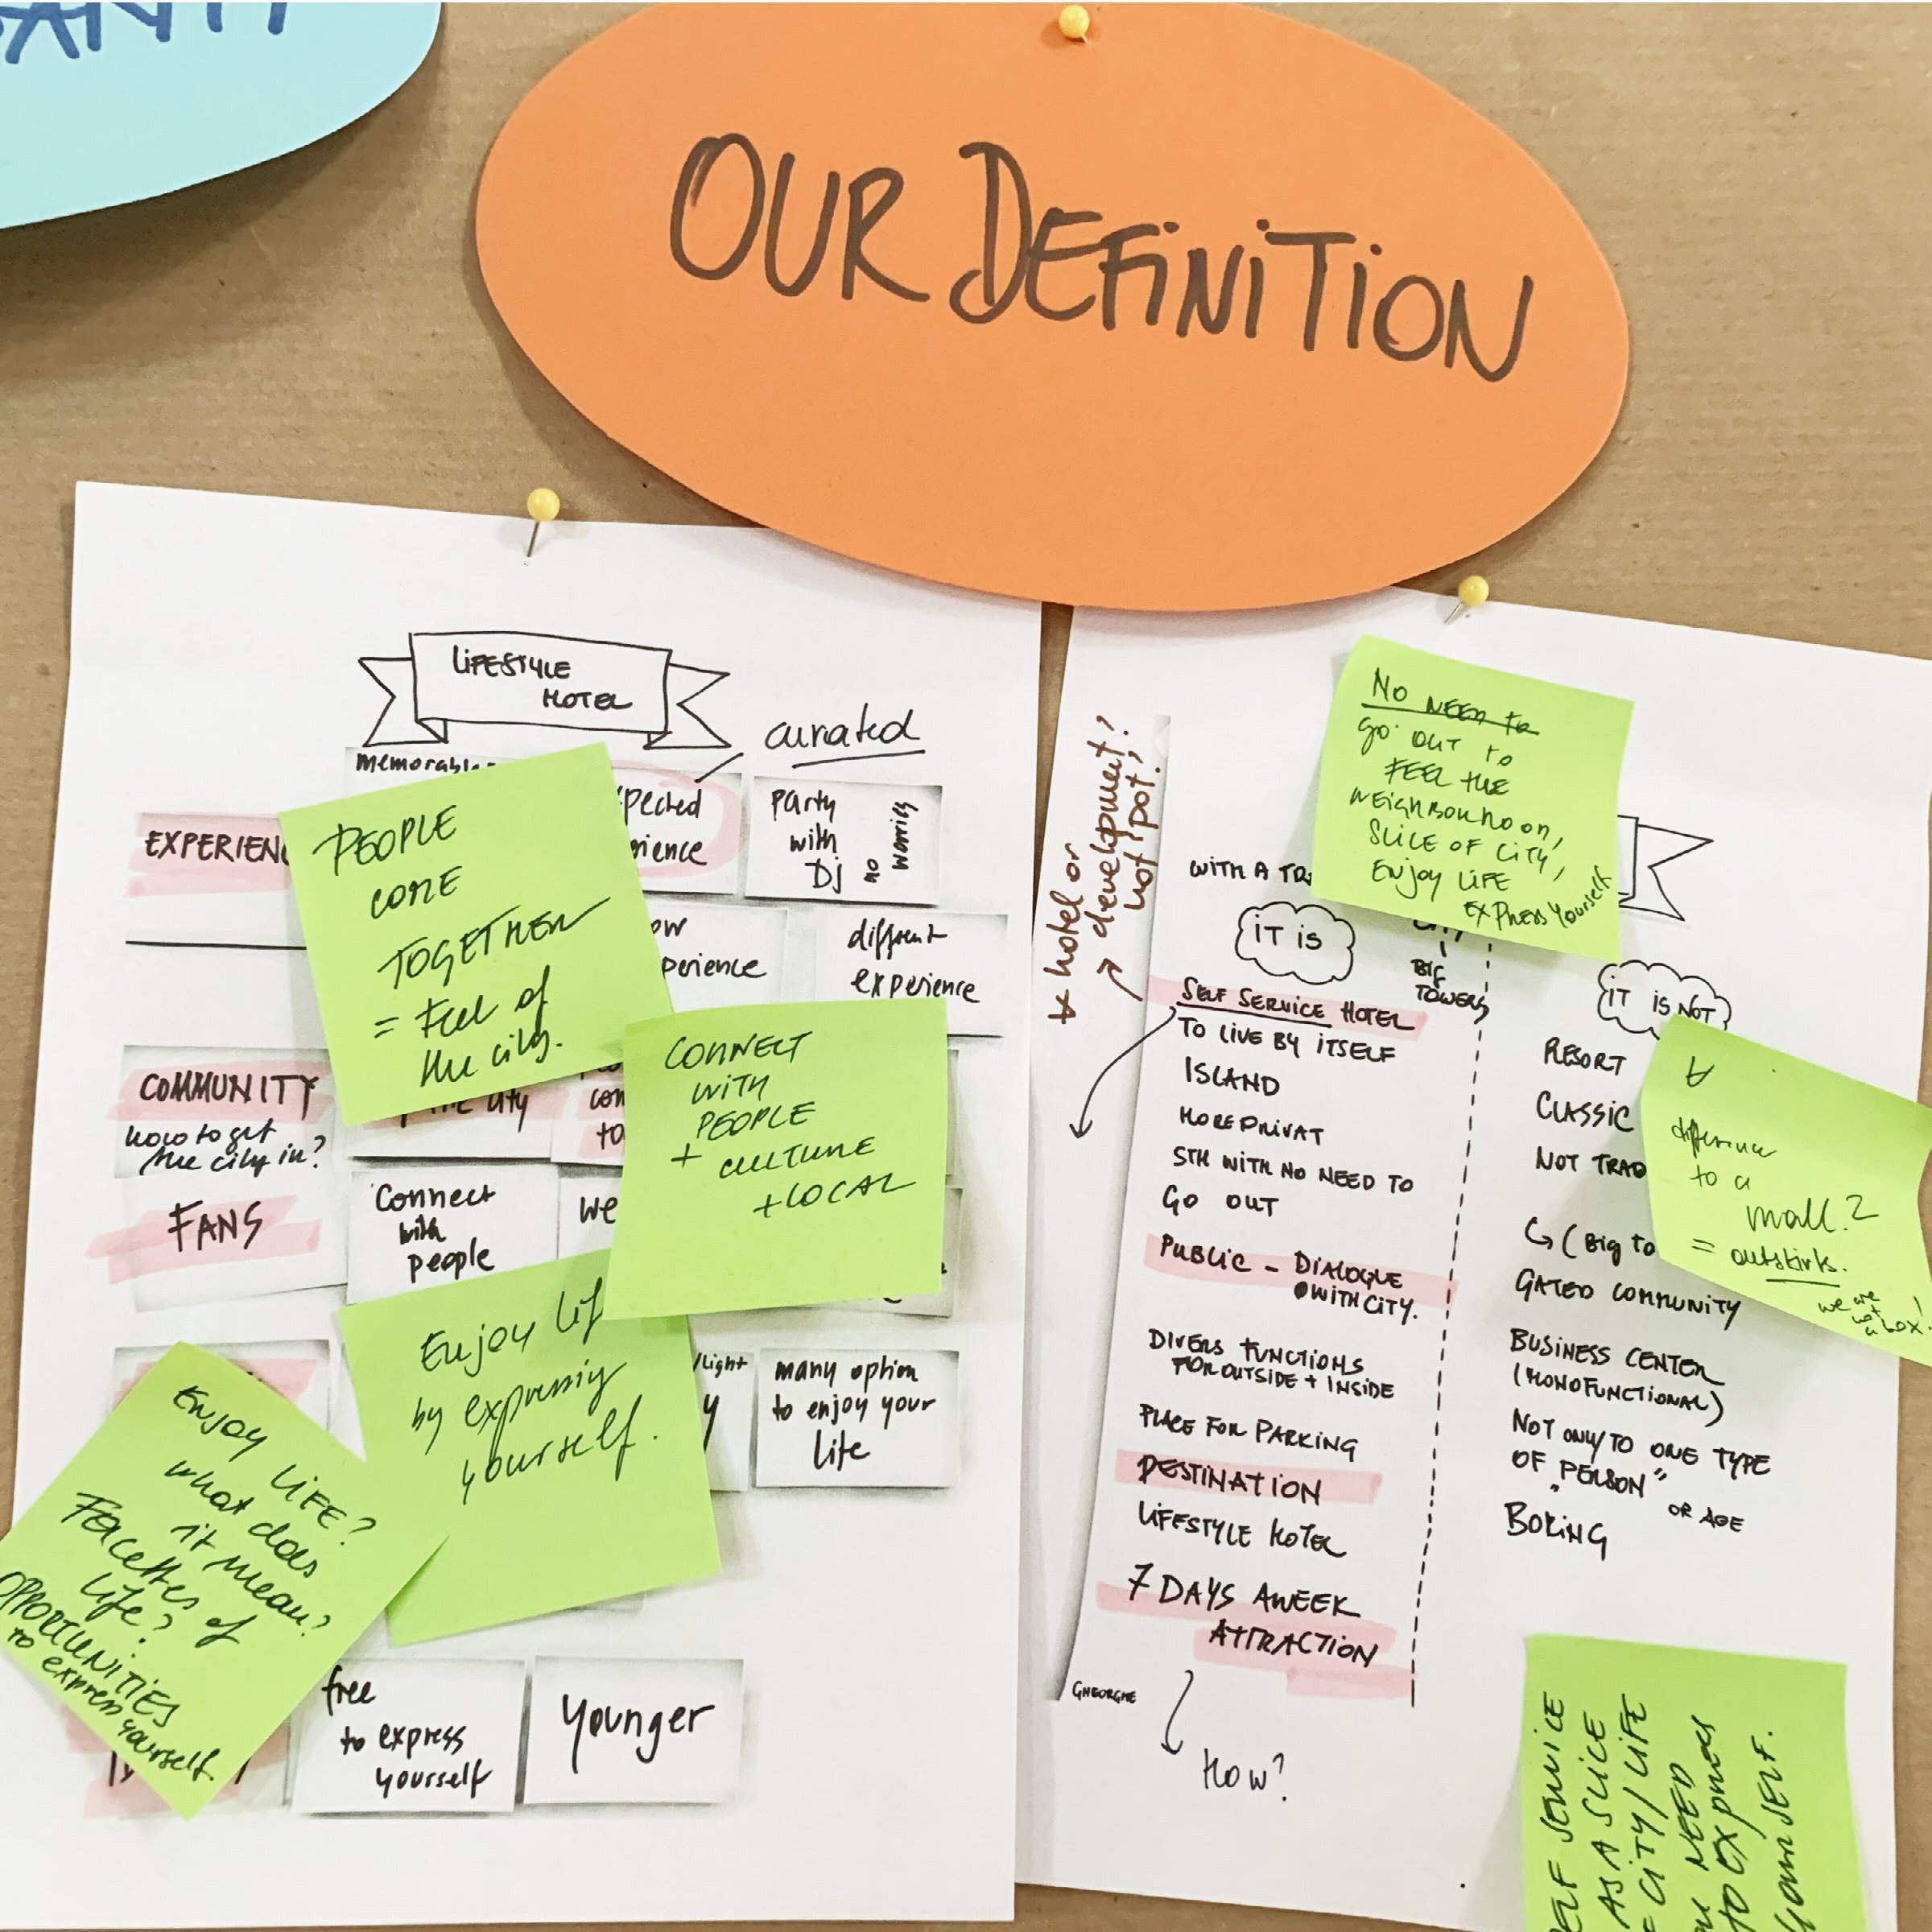 OUR DEFINITION
LIFESTYLE
HOTEL
curated
memorable
EXPERIENC
pected
rience
Party
with
Dj
no
worries
ow
perience
different
experience
PEOPLE
COME
TOGETHER
= Feel of
the city.
COMMUNITY
how to get
the city in?
the city
con
to
CONNECT
WITH
PEOPLE
+ CULTURE
+ LOCAL
FANS
Connect
with
people
we
Enjoy lif
by expressing
yourself.
/light
y
many option
to enjoy your
life
ENJOY LIFE?
what does
it mean?
Facettes of
life?
OPPORTUNITIES
TO
express yourself
free
to express
yourself
Younger
∀ hotel or
development!
not ipot!
NO NEED TO
GO OUT TO
FEEL THE
NEIGHBOURHOOD,
SLICE OF CITY,
ENJOY LIFE
EXPRESS YOURSELF
WITH A TR
IT IS
CITY
BIG
TOWERS
SELF SERVICE HOTEL
TO LIVE BY ITSELF
ISLAND
MORE PRIVAT
STH WITH NO NEED TO
GO OUT
PUBLIC - DIALOGUE
WITH CITY.
DIVERS FUNCTIONS
FOR OUTSIDE + INSIDE
PLACE FOR PARKING
DESTINATION
LIFESTYLE HOTEL
7 DAYS A WEEK
ATTRACTION
GHEORGHE
How?
IT IS NOT
RESORT
CLASSIC
NOT TRAD
(BIG TO
GATED COMMUNITY
BUSINESS CENTER
(MONOFUNCTIONAL)
NOT ONLY TO ONE TYPE
OF "PERSON"
OR AGE
BORING
∀
difference
to a
mall?
= outskirts.
we are
not
a box!
ELF SERVICE
AS A SLICE
= CITY/LIFE
NEED
TO EXPRESS
YOURSELF.